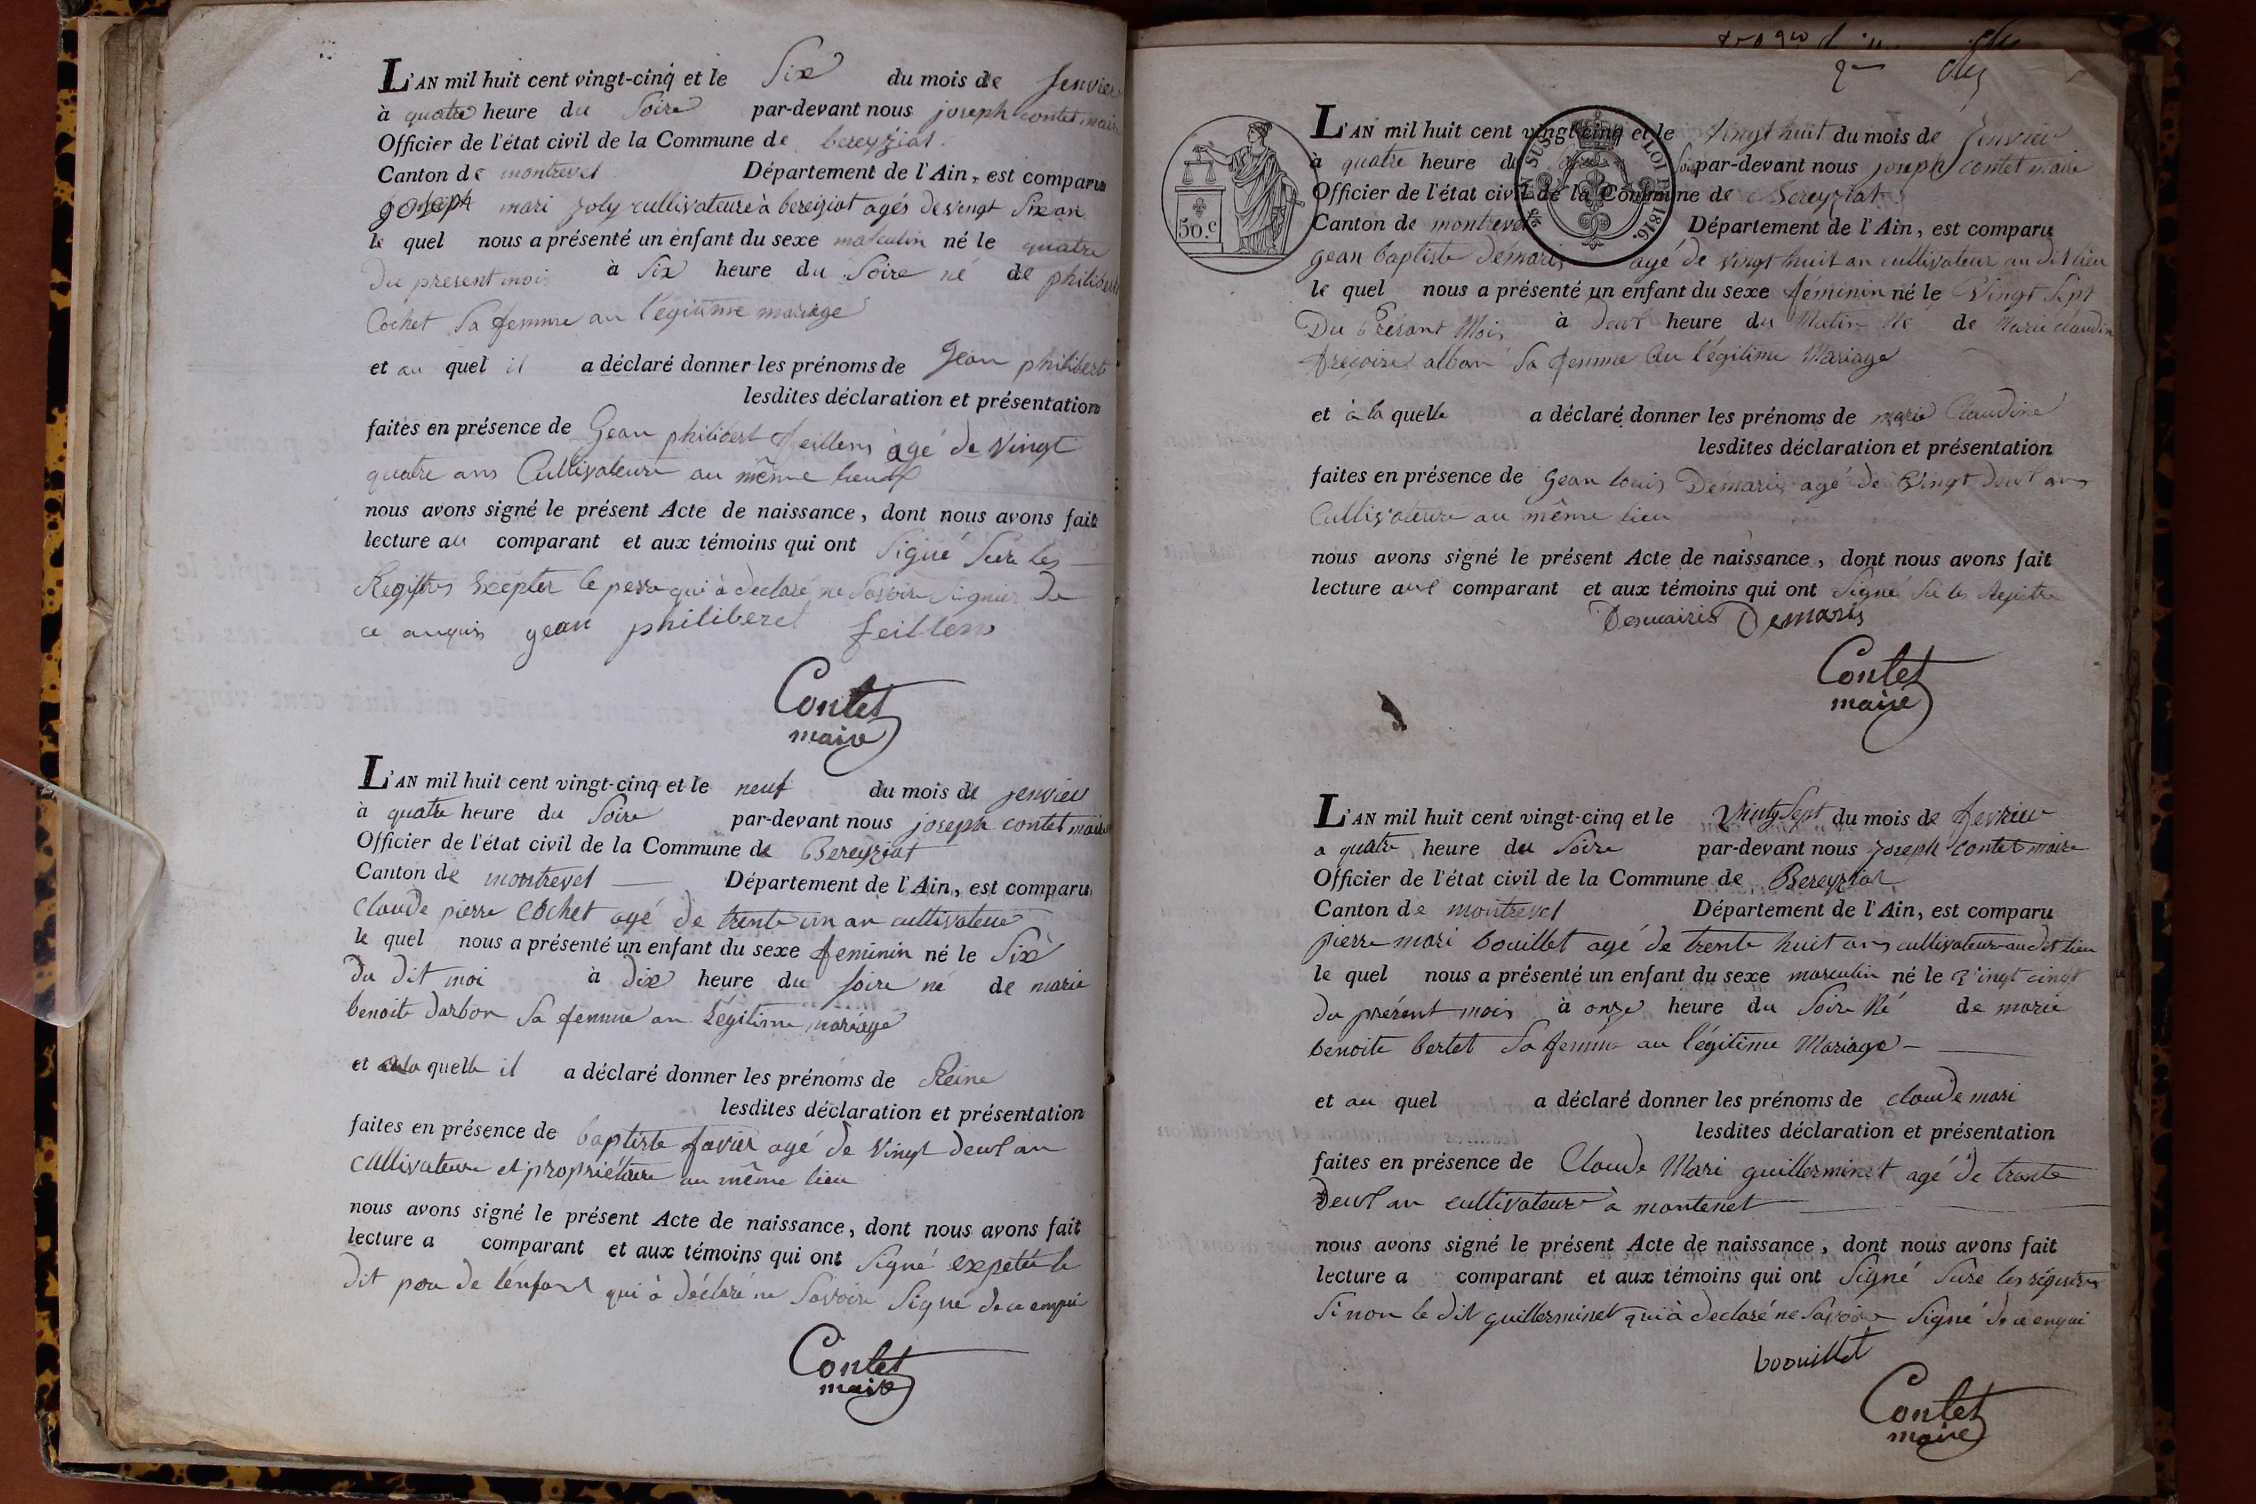 L'AN mil huit cent vingt-cinq et le Six du mois de Jenvier
à quatre heure du Soire par-devant nous joseph contet maire
Officier de l'état civil de la Commune de bereyziat.
Canton de montrevel Département de l'Ain, est comparu
joseph mari joly cultivateure à bereiziat agés de vingt Six an
le quel nous a présenté un enfant du sexe masculin né le quatre
Du present mois à Six heure du Soire né de philiberte
Cochet Sa femme au légitime mariage
et au quel il a déclaré donner les prénoms de Jean philibert
lesdites déclaration et présentation
faites en présence de Gean philibert feillens agé de Vingt
quatre ans Cultivateure au même lieux
nous avons signé le présent Acte de naissance, dont nous avons fait
lecture au comparant et aux témoins qui ont Signé Sure les
Registres Excepter le pere qui à declaré ne Savoire Signier De
ce anquis gean philiberel feillens
Contet
maire
L'AN mil huit cent vingt-cinq et le neuf du mois de jenvier
à quatre heure du Soire par-devant nous joseph contet maire
Officier de l'état civil de la Commune de Bereyziat
Canton de montrevel Département de l'Ain, est comparu
Claude pierre Cochet agé de trente un an cultivateure
le quel nous a présenté un enfant du sexe feminin né le Six
du dit moi à dix heure du soire né de marie
benoite darbon Sa femme au Légitime mariage
et a la quelle il a déclaré donner les prénoms de Reine
lesdites déclaration et présentation
faites en présence de baptiste favier agé de Vingt deux an
Cultivateure et propriétaire au même lieu
nous avons signé le présent Acte de naissance, dont nous avons fait
lecture a comparant et aux témoins qui ont Signé expeter le
dit pere de l'enfant qui à déclaré ne Savoire Signé de ce enqui
Contet
maire
50.c
EN SUS LOI DE 1816.
L'AN mil huit cent vingt-cinq et le Vingt huit du mois de Jenvier
à quatre heure du Soir par-devant nous joseph contet maire
Officier de l'état civil de la Commune de Bereyziat
Canton de montrevel Département de l'Ain, est comparu
gean baptiste demaris agé de vingt huit an cultivateur au dit lieu
le quel nous a présenté un enfant du sexe feminin né le Vingt Sept
Du Présant Mois à Deux heure du Matin Né de Marie claudin
alban Sa femme Au légitime Mariage
et à la quelle a déclaré donner les prénoms de marie Claudine
lesdites déclaration et présentation
faites en présence de Gean louis Demaris agé de Vingt deux ans
Cultivateure au même lieu
nous avons signé le présent Acte de naissance, dont nous avons fait
lecture aux comparant et aux témoins qui ont Signé Su les Registre
Desmairis Demaris
Contet
maire
L'AN mil huit cent vingt-cinq et le Vingt Sept du mois de fevrier
a quatre heure du Soire par-devant nous Joseph contet maire
Officier de l'état civil de la Commune de Bereyziat
Canton de montrevel Département de l'Ain, est comparu
pierre mari bouillet agé de trente huit ans cultivateur au dit lieu
le quel nous a présenté un enfant du sexe masculin né le Vingt cinqt
du présent mois à onze heure du Soire Né de marie
benoite bertet Sa femme au légitime Mariage
et au quel a déclaré donner les prénoms de claude mari
lesdites déclaration et présentation
faites en présence de Claude Mari guillerminet agé de trante
Deux an cultivateur à mantenet
nous avons signé le présent Acte de naissance, dont nous avons fait
lecture a comparant et aux témoins qui ont Signé Sure les régistres
Sinon le dit guillerminet qui à declaré ne Savoire Signé de ce enqui
boouillet
Contet
maire